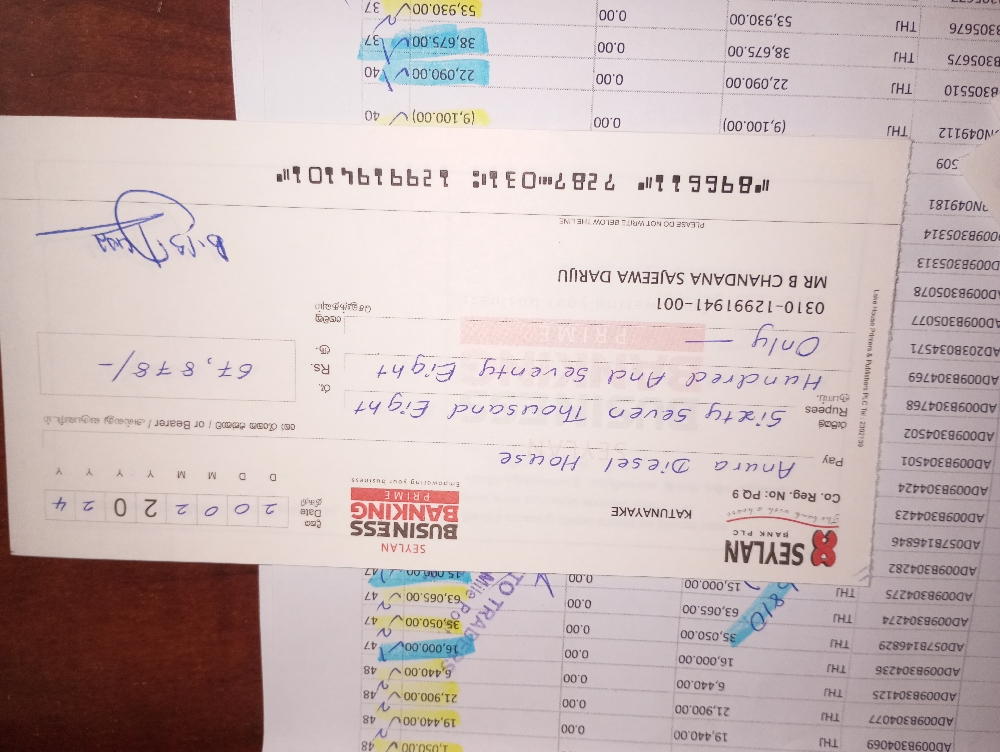 1,050.00 48
AD009B304069 THJ 19,440.00 0.00 19,440.00 48
AD009B304077 THJ 21,900.00 0.00 21,900.00 48
AD009B304125 THJ 6,440.00 0.00 6,440.00 48
AD009B304236 THJ 16,000.00 0.00 16,000.00 47
AD057B146829 THJ 35,050.00 0.00 35,050.00 47
AD009B304274 THJ 63,065.00 0.00 63,065.00 47
AD009B304275 THJ 15,000.00 0.00 15,000.00 47
TO TRADERS
AD009B304282
AD057B146846
AD009B304423
AD009B304424
AD009B304501
AD009B304502
AD009B304768
AD009B304769
AD203B034571
AD009B305077
AD009B305078
AD009B305313
AD009B305314
N049181
509
SEYLAN
BANK PLC
The bank with a heart
Co. Reg: No: PQ 9
KATUNAYAKE
SEYLAN
BUSINESS
BANKING
PRIME
Empowering your business
දිනය
Date
திகதி
2 0 0 2 2 0 2 4
D D M M Y Y Y Y
Pay Anura Diesel House
හෝ රැගෙන එන්නාට / or Bearer /
රුපියල්
Rupees
ரூபாய்
Sixty Seven Thousand Eight
Hundred And Seventy Eight
Only —
රු.
Rs.
ரூ.
67,878/-
0310-12991941-001
MR B CHANDANA SAJEEWA DARIJU
PLEASE DO NOT WRITE BELOW THE LINE
Lake House Printers & Publishers PLC
N049112 THJ (9,100.00) 0.00 (9,100.00) 40
B305510 THJ 22,090.00 0.00 22,090.00 40
B305675 THJ 38,675.00 0.00 38,675.00 37
B305676 THJ 53,930.00 0.00 53,930.00 37